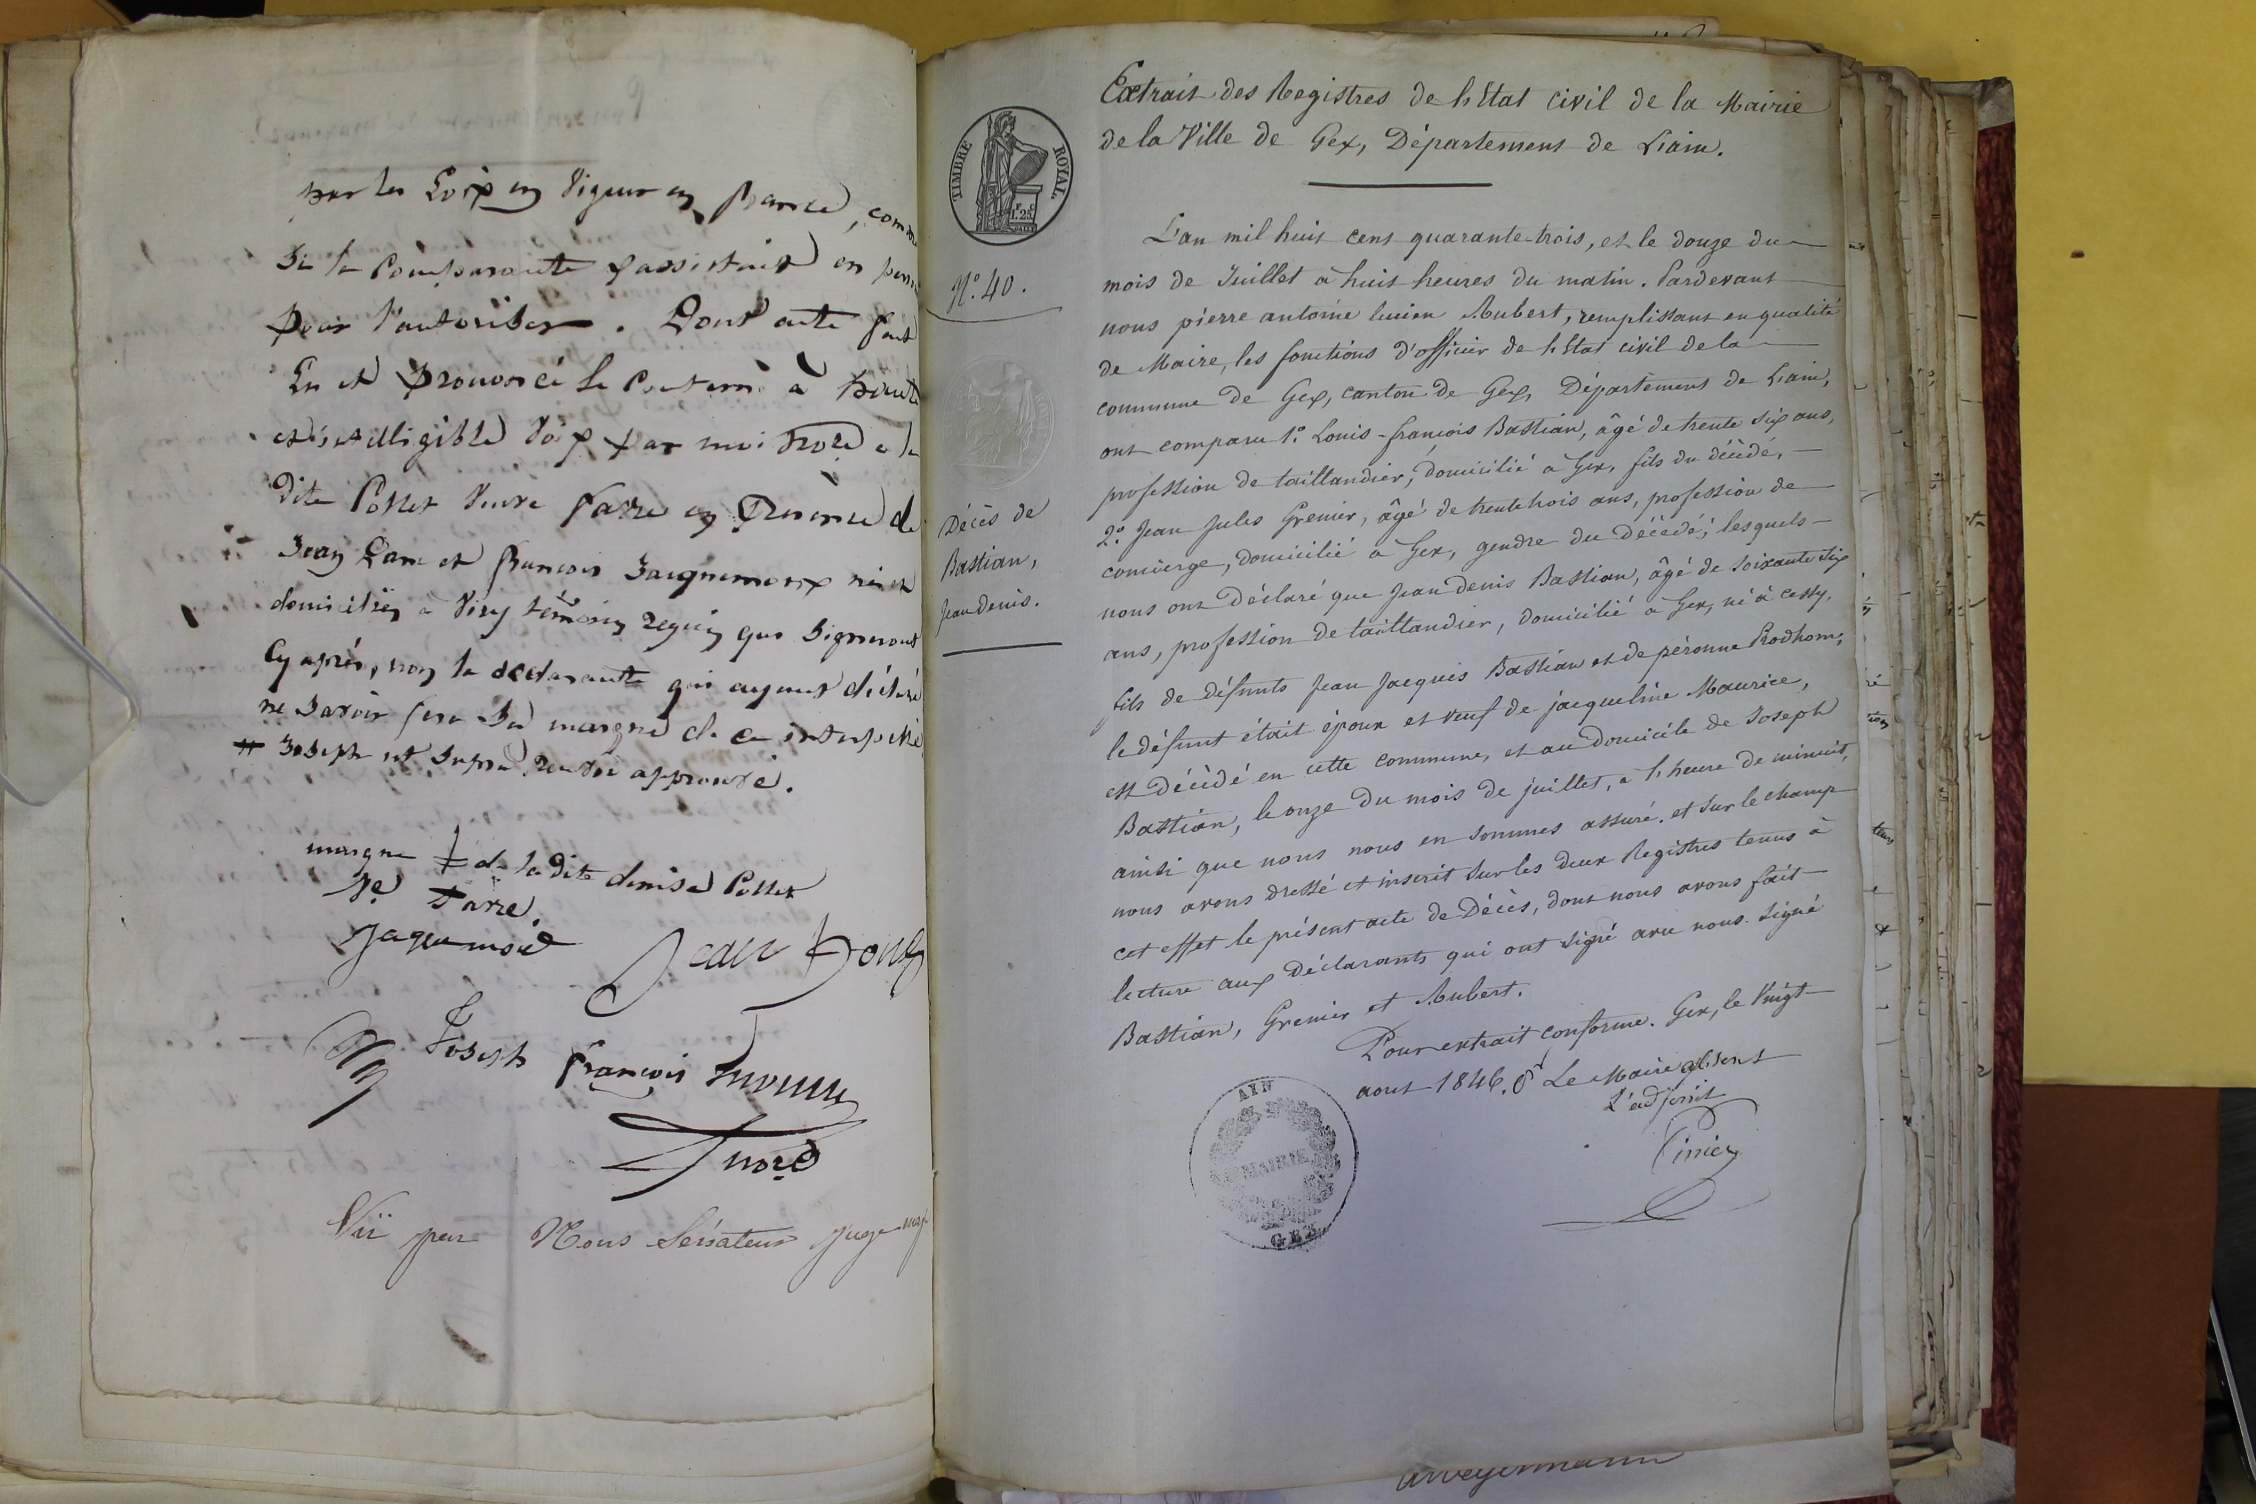 par les Loix en Vigueur en france, comme
Si la Comparante y assistait en
pour l'autoriser. Dont acte fait
Lu et prononcé le Contenu à haute
et intelligible Voix par moi Notre a la
dite Pottet Veuve favre en Présence de
Jean Dom et françois Jacquemoux nés et
domiciliés à Viry témoins requis qui Signeront
Cy après, non la declarante qui ayant déclaré
ne Savoir fera Sa marque de ce interpellé
# Joseph et approuvé.
marque ‡ de la dite denise Pottet
Ve favre.
Jaquemoud
Jean
Joseph
françois
Vû par Nous Sénateur Juge
TIMBRE ROYAL
1.25
N.° 40.
Décès de
Bastian,
Jean Denis.
Extrait des Registres de l'Etat civil de la Mairie
de la Ville de Gex, Département de L'ain.
L'an mil huit cent quarante-trois, et le douze du
mois de Juillet à huit heures du matin. Pardevant
nous pierre antoine lucien Aubert, remplissant en qualité
de Maire, les fonctions d'officier de l'Etat civil de la
commune de Gex, canton de Gex, Département de L'ain,
ont comparu 1.° Louis-françois Bastian, âgé de trente six ans,
profession de taillandier, domicilié à Gex, fils du décédé,
2.° Jean Jules Grenier, âgé de trente trois ans, profession de
concierge, domicilié à Gex, gendre du Décédé; lesquels
nous ont Déclaré que Jean Denis Bastian, âgé de soixante six
ans, profession de taillandier, domicilié à Gex, né à cessy,
fils de défunts Jean Jacques Bastian et de péronne Rodhom;
le défunt était époux et veuf de jacqueline Maurice,
est Décédé en cette commune, et au domicile de Joseph
Bastian, le onze du mois de juillet, à l'heure de minuit,
ainsi que nous nous en sommes assuré. et sur le champ
nous avons dressé et inscrit sur les deux Registres tenus à
cet effet le présent acte de Décès, dont nous avons fait
lecture aux Déclarants qui ont signé avec nous. Signé
Bastian, Grenier et Aubert.
Pour extrait conforme. Gex, le Vingt
aout 1846. Le Maire absent
L'adjoint
AIN
MAIRIE
GEX